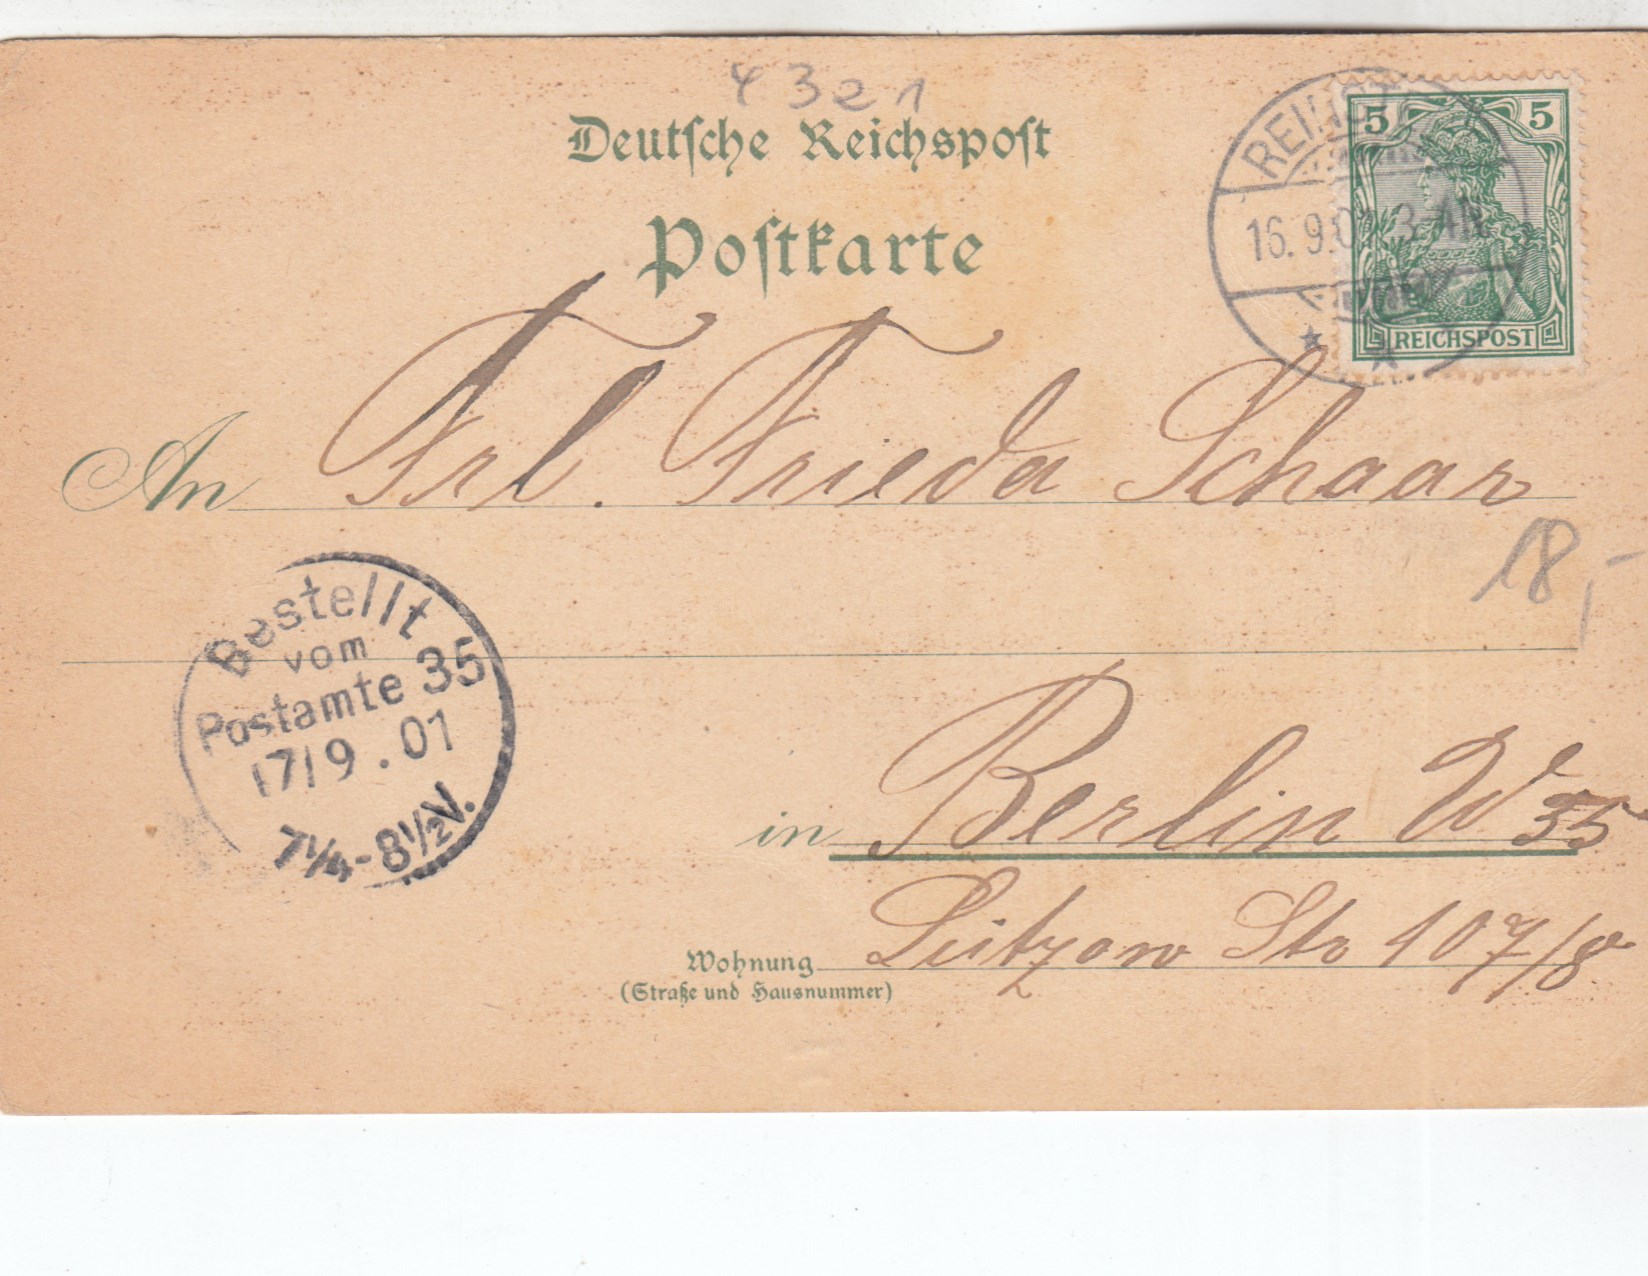 4321
Deutsche Reichspost
Postkarte
5 5
16.9.01. 3-4N.
REICHSPOST
An Frl. Frieda Schaar
18,-
Bestellt
vom
Postamte 35
17/9.01
7¼-8½V.
in Berlin W 35
Wohnung Lützow Str 107/8
(Straße und Hausnummer)